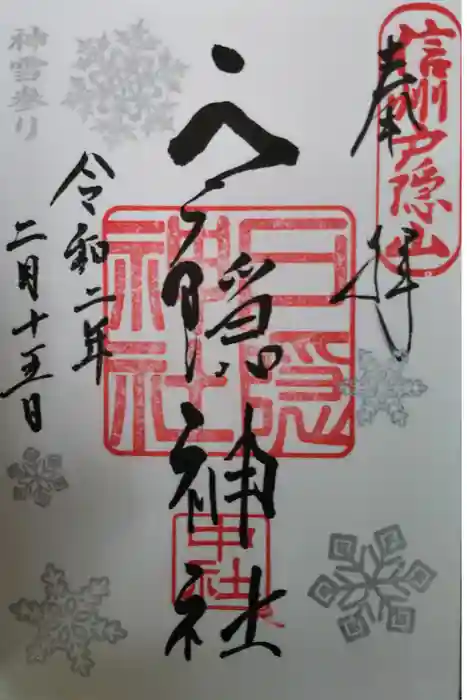 信州戸隠山
奉拝
戸隠神社
戸隠
神社
中社
令和二年
二月十五日
神雪参り